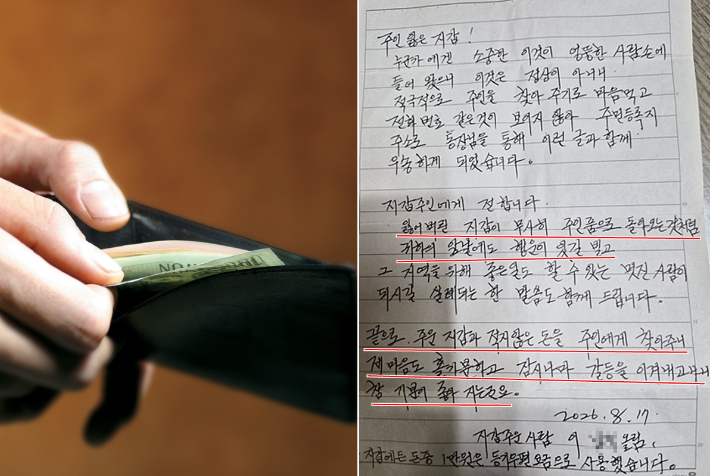 주인 잃은 지갑!
누군가에겐 소중한 이것이 엉뚱한 사람손에
들어 왔으니 이것은 정상이 아니니
적극적으로 주인을 찾아 주기로 마음먹고
전화 번호 같은것이 보이지 않아 주민등록지
주소로 통장님을 통해 이런 글과 함께
우송하게 되었습니다.
지갑주인에게 전합니다
잃어버린 지갑이 무사히 주인품으로 돌아오는것처럼
귀하의 앞날에도 행운이 있길 빌고
그 지역을 위해 좋은일도 할 수 있는 멋진 사람이
되시길 실례되는 한 말씀도 함께 드립니다.
끝으로, 주운 지갑과 적지않은 돈을 주인에게 찾아주니
제 마음도 홀가분하고 잠시나마 갈등을 이겨내고나니
참 기분이 좋아 지는군요.
2026. 8. 17
지갑주운 사람 이 올림.
지갑에든 돈중 1만원은 등기우편 요금으로 사용했습니다.